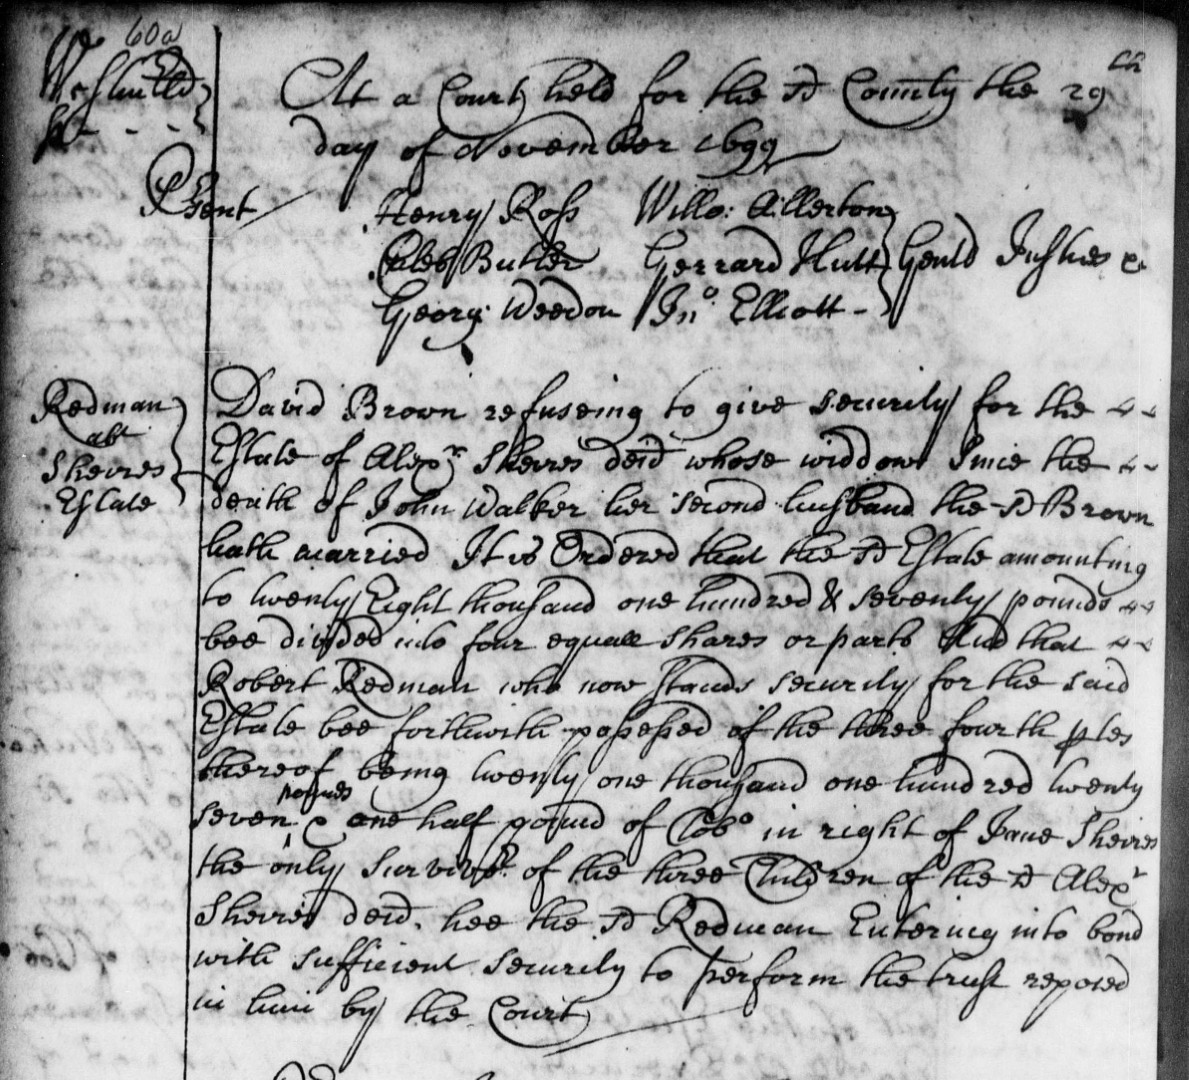 60a
Westmrld
sc
At a Court held for the sd County the 29th
day of November 1699
Psent
Henry Ross Willo: Allerton
Caleb Butler Gerrard Hutt Gentld Justices &c
Georg: Weedon Jno Elliott -
Redman
abt
Sheires
Estate
David Brown refuseing to give security for the
Estate of Alexr Sheires decd whose widdow Since the
death of John Walker her second husband the sd Brown
hath married It is Ordered that the sd Estate amounting
to twenty Eight thousand one hundred & seventy pounds
bee divided into four equall shares or parts And that
Robert Redman who now stands security for the said
Estate bee forthwith possessed of the three fourth ptes
thereof being twenty one thousand one hundred twenty
seven pounds & one half pound of Tobo in right of Jane Sheires
the only Survivr of the three Children of the sd Alexr
Sheires decd, hee the sd Redman Entering into bond
with sufficient security to perform the trust reposed
in him by the Court